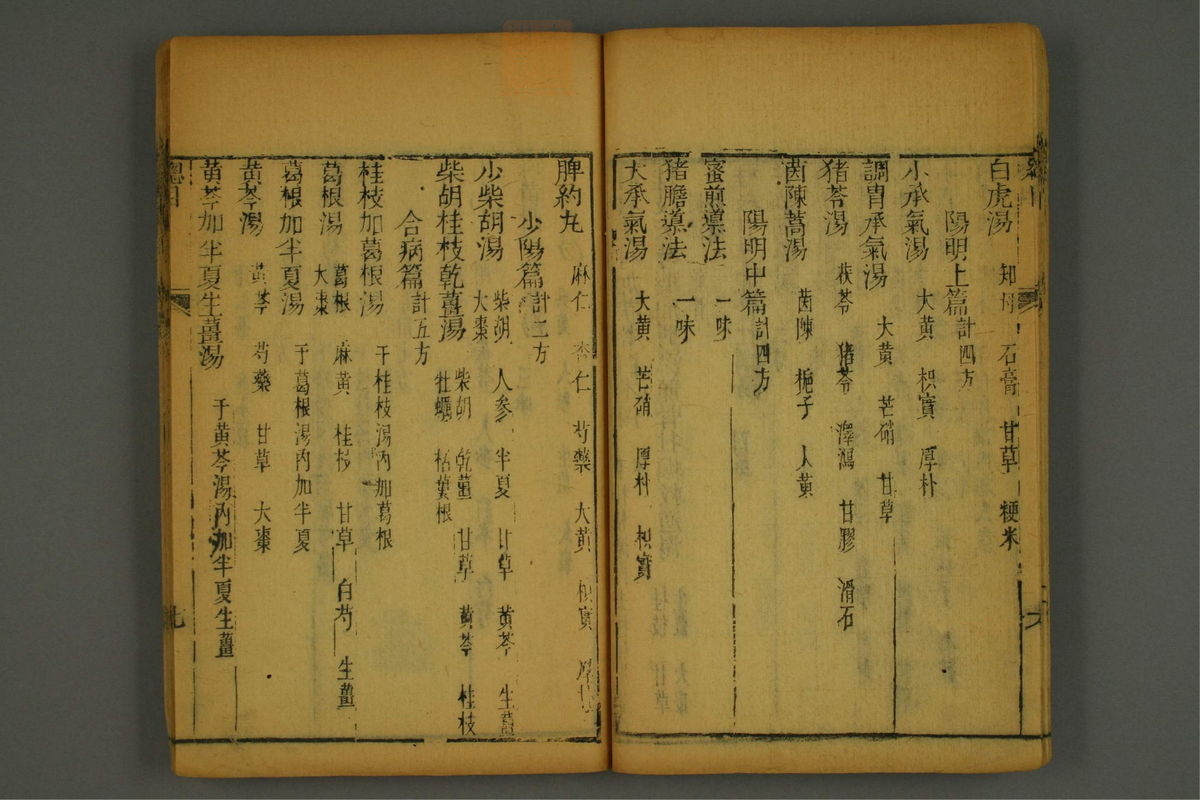 總目
白虎湯 知母 石膏 甘草 粳米
陽明上篇 計四方
小承氣湯 大黄 枳實 厚朴
調胃承氣湯 大黄 芒硝 甘草
猪苓湯 茯苓 猪苓 澤瀉 甘膠 滑石
茵陳蒿湯 茵陳 梔子 人黄
陽明中篇 計四方
蜜煎導法 一味
猪膽導法 一味
大承氣湯 大黄 芒硝 厚朴 枳實
脾約丸 麻仁 杏仁 芍藥 大黄 枳實 厚朴
少陽篇 計二方
小柴胡湯 柴胡 人參 半夏 甘草 黄芩 生薑
大棗
柴胡桂枝乾薑湯 柴胡 乾薑 甘草 黄芩 桂枝
牡蠣 栝蔞根
合病篇 計五方
桂枝加葛根湯 于桂枝湯内加葛根
葛根湯 葛根 麻黄 桂枝 甘草 白芍 生薑
大棗
葛根加半夏湯 于葛根湯内加半夏
黄芩湯 黄芩 芍藥 甘草 大棗
黄芩加半夏生薑湯 于黄芩湯内加半夏生薑
總目
七